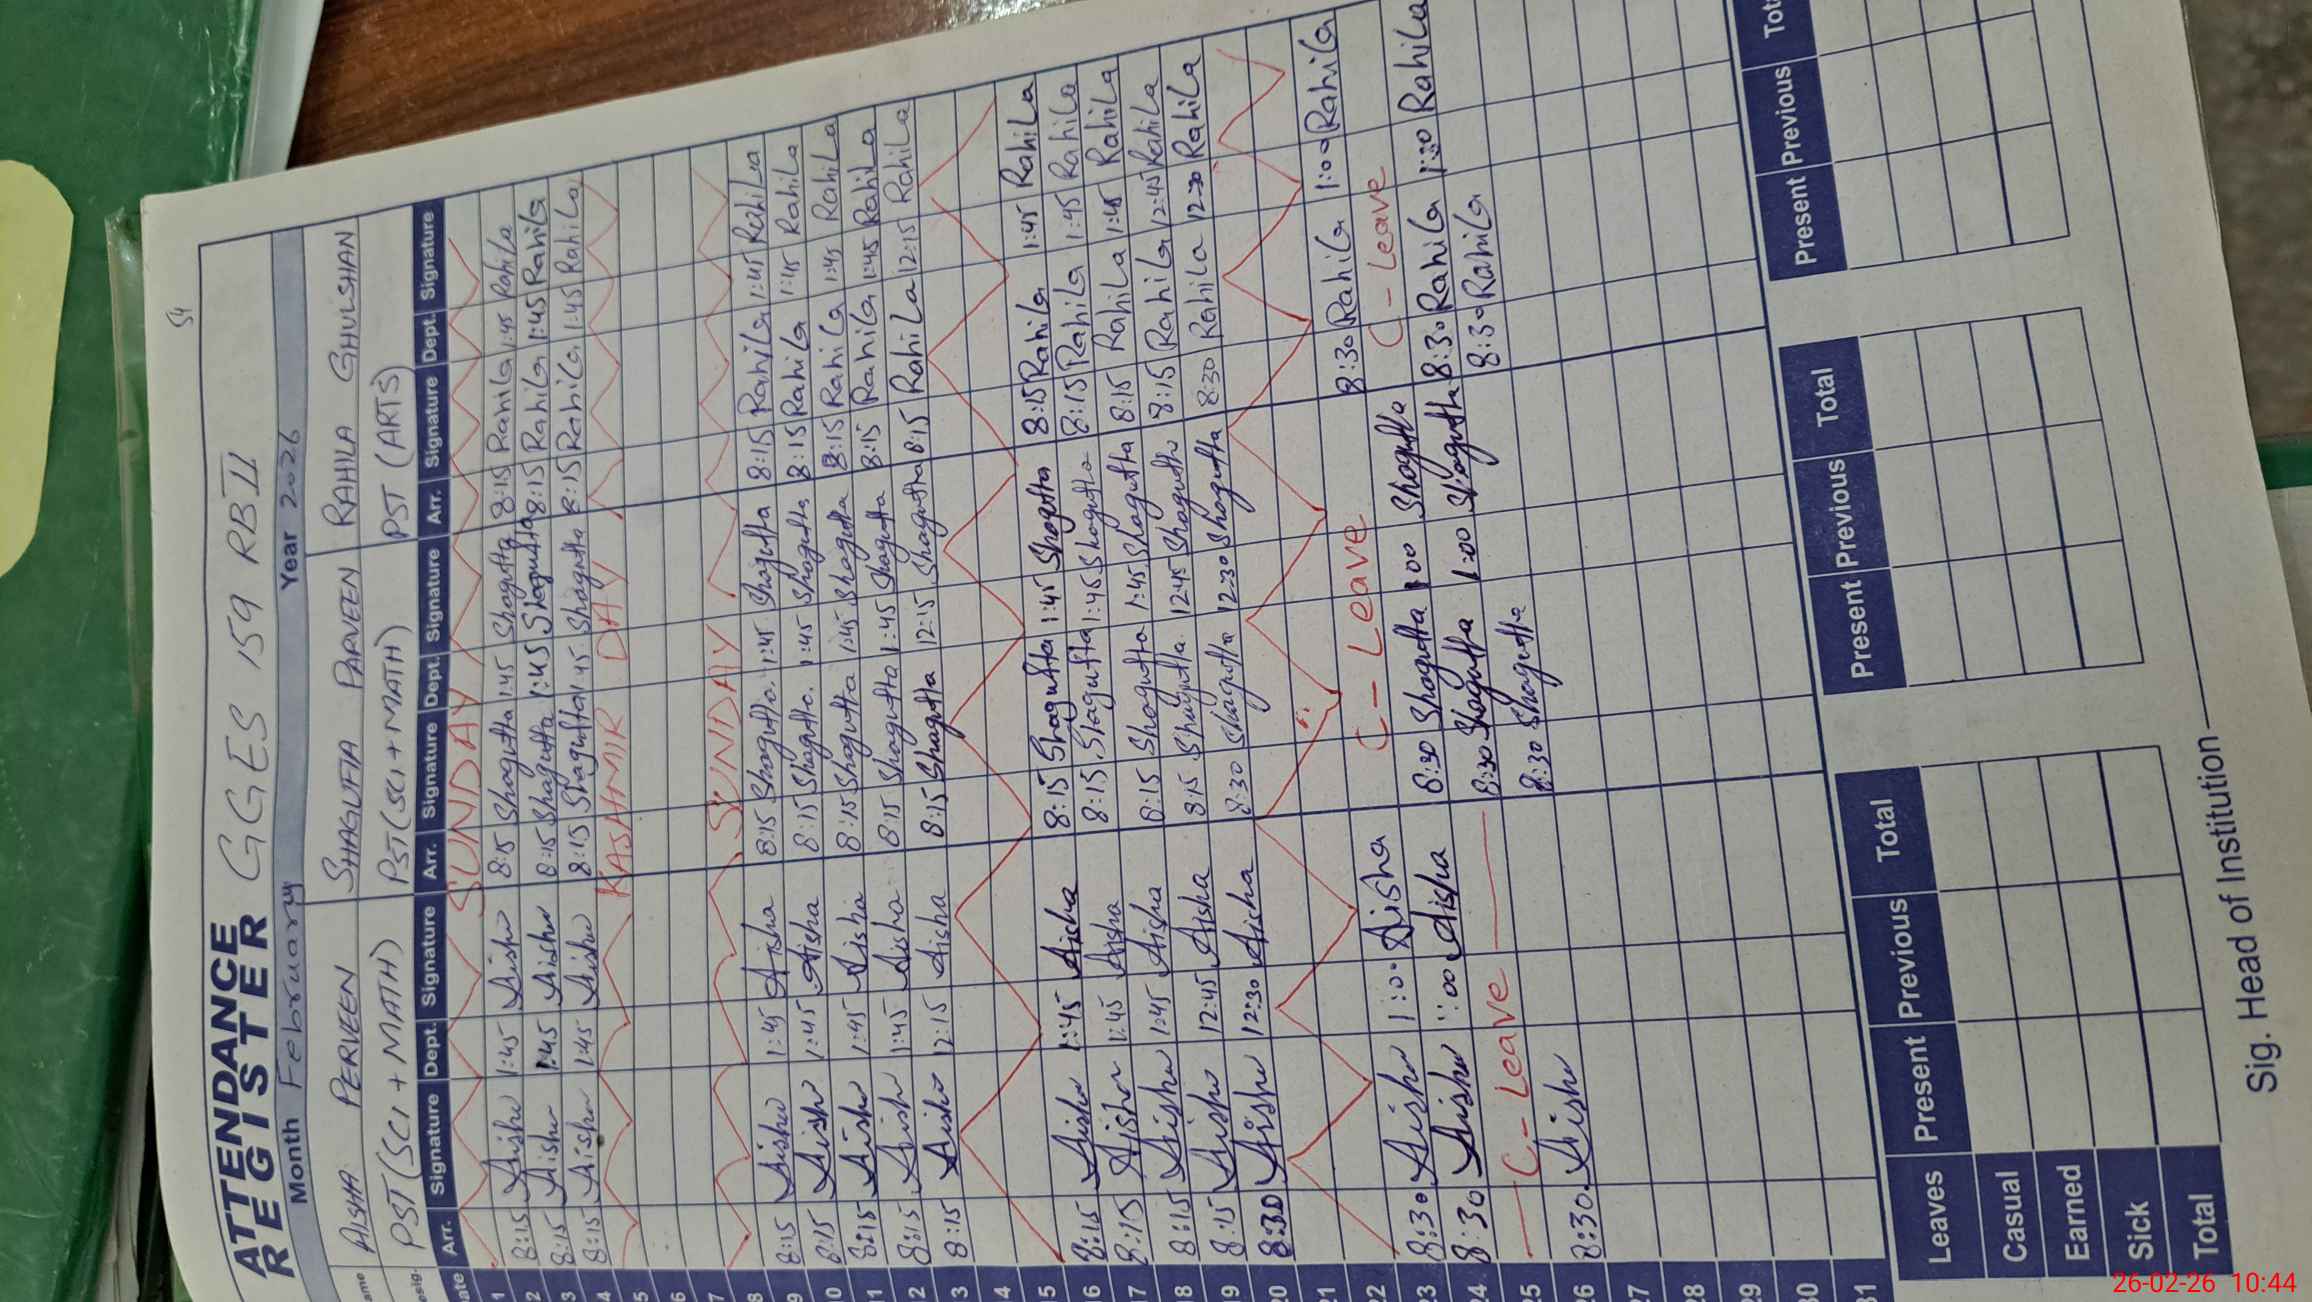 54
ATTENDANCE REGISTER GGES 159 RB II
Month February Year 2026
ame AISHA PERVEEN SHAGUFTA PARVEEN RAHILA GHULSHAN
esig. PST (SCI + MATH) PST (SCI + MATH) PST (ARTS)
ate Arr. Signature Dept. Signature Arr. Signature Dept. Signature Arr. Signature Dept. Signature
1 SUNDAY
2 8:15 Aisha 1:45 Aisha 8:15 Shagufta 1:45 Shagufta 8:15 Rahila 1:45 Rahila
3 8:15 Aisha 1:45 Aisha 8:15 Shagufta 1:45 Shagufta 8:15 Rahila 1:45 Rahila
4 8:15 Aisha 1:45 Aisha 8:15 Shagufta 1:45 Shagufta 8:15 Rahila 1:45 Rahila
5 KASHMIR DAY
6
7
8 SUNDAY
9 8:15 Aisha 1:45 Aisha 8:15 Shagufta 1:45 Shagufta 8:15 Rahila 1:45 Rahila
0 8:15 Aisha 1:45 Aisha 8:15 Shagufta 1:45 Shagufta 8:15 Rahila 1:45 Rahila
1 8:15 Aisha 1:45 Aisha 8:15 Shagufta 1:45 Shagufta 8:15 Rahila 1:45 Rahila
2 8:15 Aisha 1:45 Aisha 8:15 Shagufta 1:45 Shagufta 8:15 Rahila 1:45 Rahila
3 8:15 Aisha 12:15 Aisha 8:15 Shagufta 12:15 Shagufta 8:15 Rahila 12:15 Rahila
5
16 8:15 Aisha 1:45 Aisha 8:15 Shagufta 1:45 Shagufta 8:15 Rahila 1:45 Rahila
17 8:15 Aisha 1:45 Aisha 8:15 Shagufta 1:45 Shagufta 8:15 Rahila 1:45 Rahila
18 8:15 Aisha 1:45 Aisha 8:15 Shagufta 1:45 Shagufta 8:15 Rahila 1:45 Rahila
19 8:15 Aisha 12:45 Aisha 8:15 Shagufta 12:45 Shagufta 8:15 Rahila 12:45 Rahila
20 8:30 Aisha 12:30 Aisha 8:30 Shagufta 12:30 Shagufta 8:30 Rahila 12:30 Rahila
21
22
23 8:30 Aisha 1:00 Aisha C-Leave 8:30 Rahila 1:00 Rahila
24 8:30 Aisha 1:00 Aisha 8:30 Shagufta 1:00 Shagufta C-Leave
25 C-Leave 8:30 Shagufta 1:00 Shagufta 8:30 Rahila 1:00 Rahila
26 8:30 Aisha 8:30 Shagufta 8:30 Rahila
27
28
29
30
31
Leaves Present Previous Total Present Previous Total Present Previous Tot
Casual
Earned
Sick
Total
Sig. Head of Institution
26-02-26 10:44